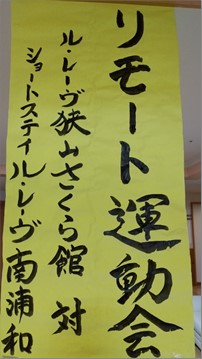 リモート運動会
ル・レーヴ狭山さくら館 対
ショートステイル・レーヴ南浦和